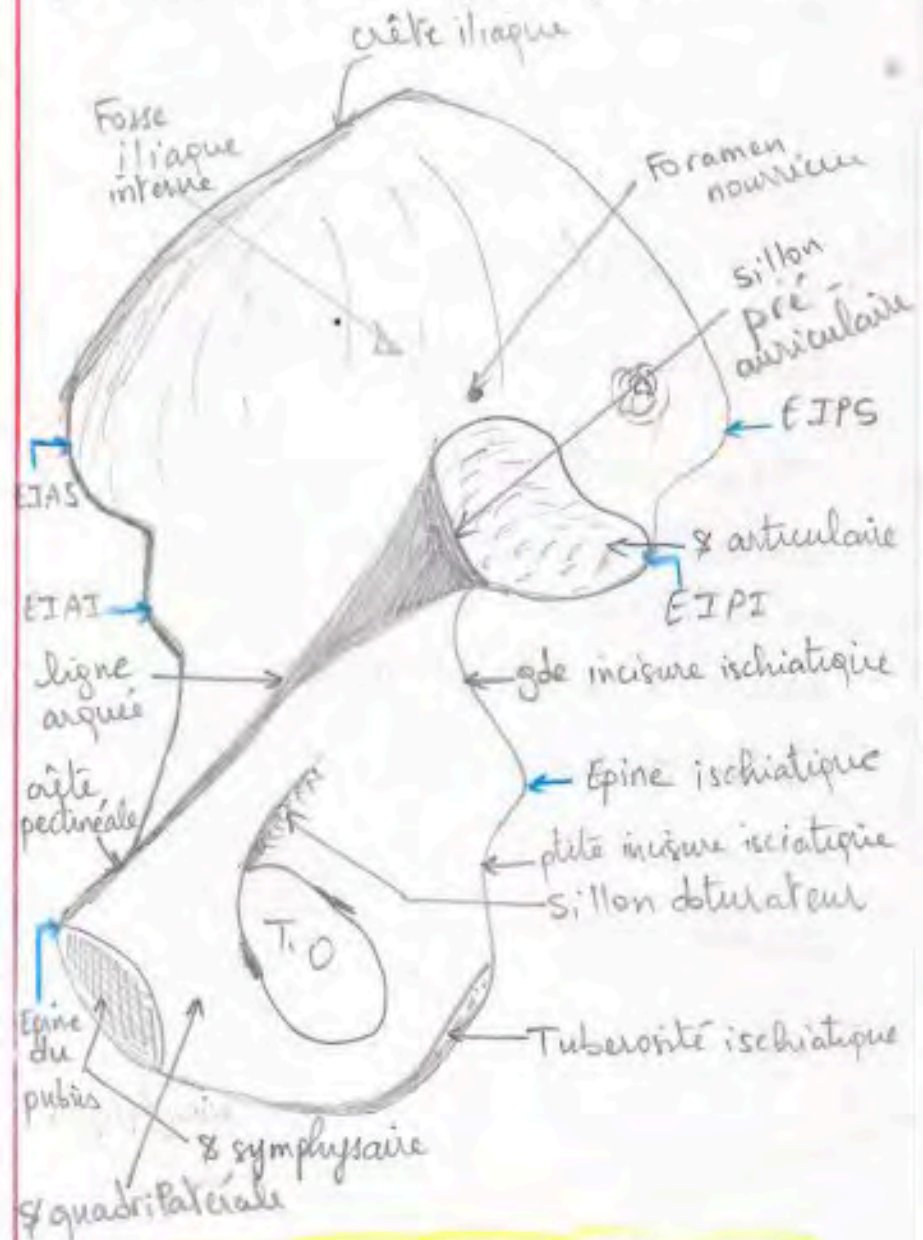 crête iliaque
Fosse
iliaque
interne
Foramen
nourricier
sillon
pré-
auriculaire
EIPS
EIAS
& articulaire
EIPI
EIAI
ligne
arquée
gde incisure ischiatique
Epine ischiatique
crête
pectinéale
ptite incisure isciatique
sillon obturateur
T.O
Epine
du
pubis
Tuberosité ischiatique
& symphysaire
& quadrilatérale